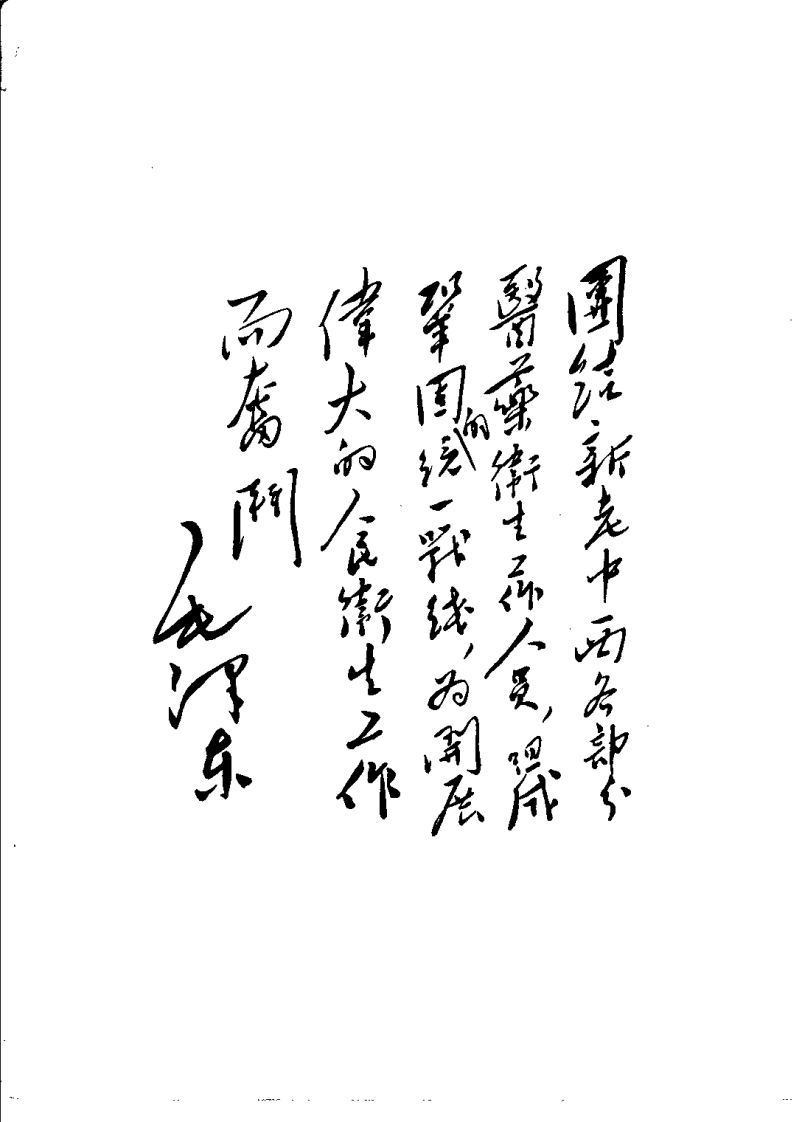 團结新老中西各部分
醫藥衛生工作人員，組成
鞏固的统一戰线，为開展
偉大的人民衛生工作
而奮鬥
毛泽东